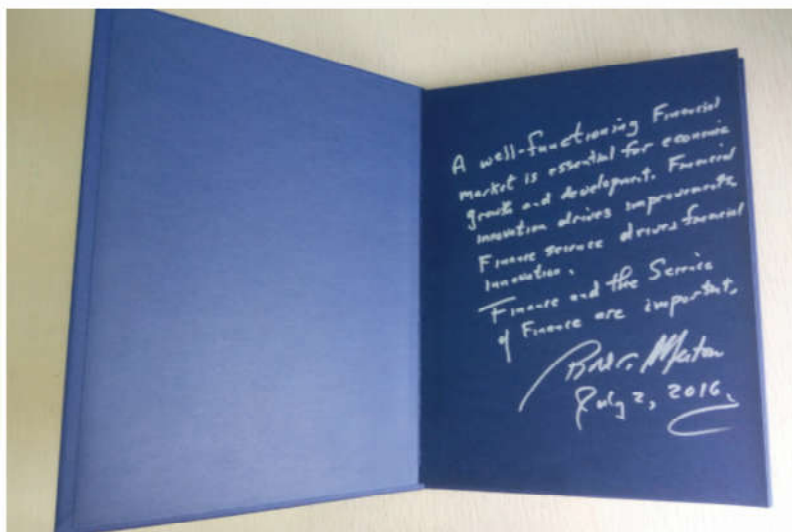 A well-functioning Financial
market is essential for economic
growth and development. Financial
innovation drives improvements
Finance science drives financial
innovation.
Finance and the Science
of Finance are important.
Robt C. Merton
July 2, 2016.